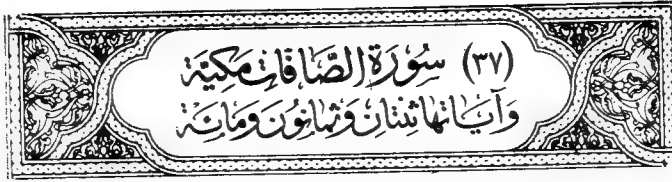 (٣٧) سُورَة الصَّافَّاتِ مَكِيَّة
وَآيَاتهَا ثِنتَانِ وَثمَانُونَ وَمِائَة